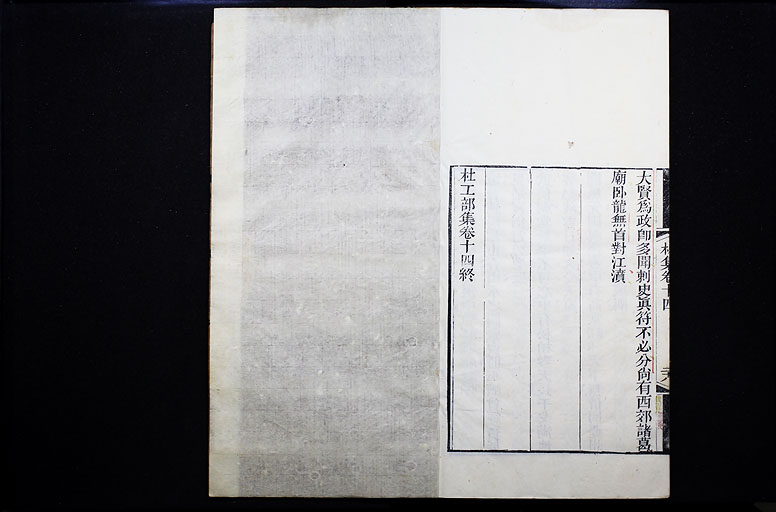 杜集卷十四
大賢為政卽多聞刺史眞符不必分尙有西郊諸葛
廟卧龍無首對江濆
杜工部集卷十四終